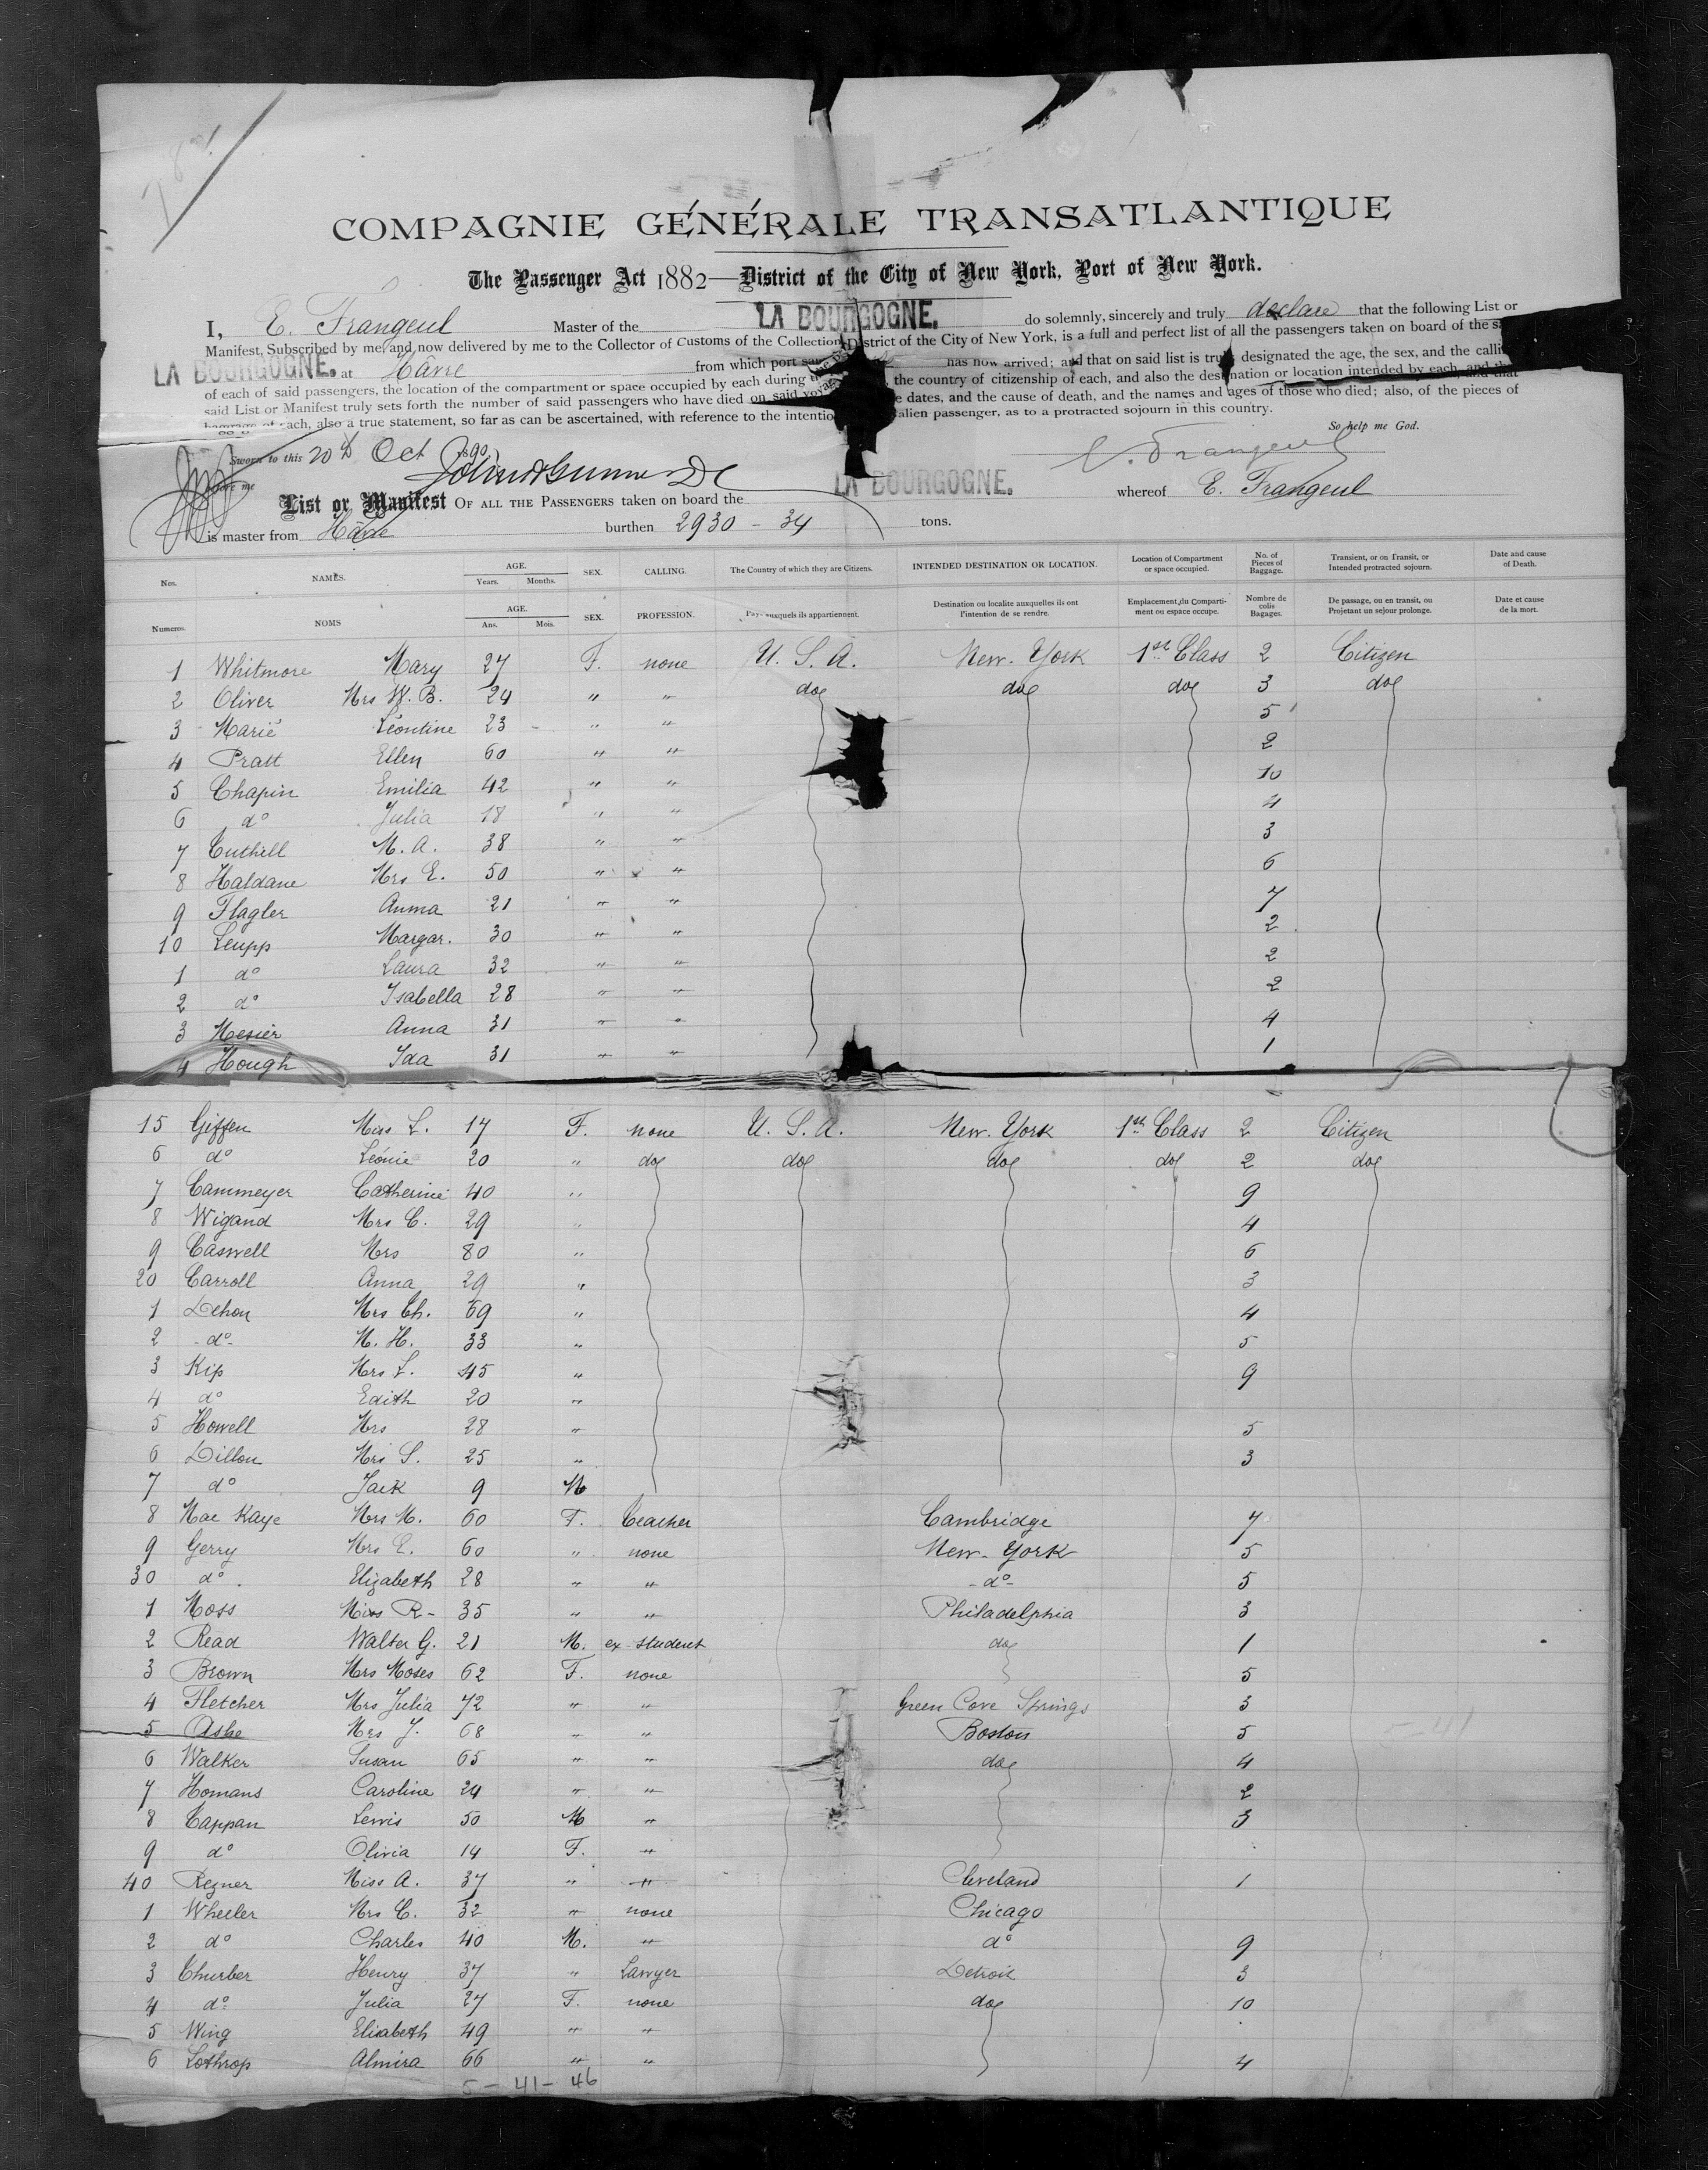 COMPAGNIE GÉNÉRALE TRANSATLANTIQUE
The Passenger Act 1882—District of the City of New York, Port of New York.
I, E. Frangeul Master of the LA BOURGOGNE. do solemnly, sincerely and truly declare that the following List or
Manifest, Subscribed by me, and now delivered by me to the Collector of Customs of the Collection District of the City of New York, is a full and perfect list of all the passengers taken on board of the
LA BOURGOGNE. at Hâvre from which port has now arrived; and that on said list is truly designated the age, the sex, and the
of each of said passengers, the location of the compartment or space occupied by each during the country of citizenship of each, and also the destination or location intended by each, and that
said List or Manifest truly sets forth the number of said passengers who have died on said dates, and the cause of death, and the names and ages of those who died; also, of the pieces of
baggage of each, also a true statement, so far as can be ascertained, with reference to the alien passenger, as to a protracted sojourn in this country.
So help me God.
Sworn to this 20th Oct 1890 E. Frangeul
List or Manifest OF ALL THE PASSENGERS taken on board the LA BOURGOGNE. whereof E. Frangeul
is master from Hâvre burthen 2930 - 34 tons.
Nos. NAMES. AGE. Years. Months. SEX. CALLING. The Country of which they are Citizens. INTENDED DESTINATION OR LOCATION. Location of Compartment or space occupied. No. of Pieces of Baggage. Transient, or on Transit, or Intended protracted sojourn. Date and cause of Death.
Numeros. NOMS AGE. Ans. Mois. SEX. PROFESSION. Pays auxquels ils appartiennent. Destination ou localite auxquelles ils ont l'intention de se rendre. Emplacement du Compartiment ou espace occupe. Nombre de colis Bagages. De passage, ou en transit, ou Projetant un sejour prolonge. Date et cause de la mort.
1 Whitmore Mary 27 F. none U. S. A. New-York 1st Class 2 Citizen
2 Oliver Mrs W. B. 24 " " do do do 3 do
3 Marié Léontine 23 " " 5
4 Pratt Ellen 60 " " 2
5 Chapin Emilia 42 " " 10
6 do Julia 18 " " 4
7 Cuthill M. A. 38 " " 3
8 Haldane Mrs E. 50 " " 6
9 Flagler Anna 21 " " 7
10 Leupp Margar. 30 " " 2
1 do Laura 32 " " 2
2 do Isabella 28 " " 2
3 Mesier Anna 31 " " 4
4 Hough Ida 31 " " 1
15 Giffen Miss L. 17 F. none U. S. A. New-York 1st Class 2 Citizen
6 do Léonie 20 " do do do do 2 do
7 Cammeyer Catherine 40 " 9
8 Wigand Mrs C. 29 " 4
9 Caswell Mrs 80 " 6
20 Carroll Anna 29 " 3
1 Dehon Mrs Ch. 69 " 4
2 do M. H. 33 " 5
3 Kip Mrs L. 45 " 9
4 do Edith 20 "
5 Howell Mrs 28 " 5
6 Dillon Mrs S. 25 " 3
7 do Jack 9 M
8 Mac Kaye Mrs M. 60 F. Teacher Cambridge 7
9 Gerry Mrs E. 60 " none New-York 5
30 do Elizabeth 28 " " do 5
1 Moss Miss R- 35 " " Philadelphia 3
2 Read Walter G. 21 M. ex-student do 1
3 Brown Mrs Moses 62 F. none 5
4 Fletcher Mrs Julia 72 " " Green Cove Springs 3
5 Ashe Mrs J. 68 " " Boston 5
6 Walker Susan 65 " " do 4
7 Homans Caroline 24 " " 2
8 Tappan Lewis 50 M " 3
9 do Olivia 14 F. "
40 Rezner Miss A. 37 " " Cleveland 1
1 Wheeler Mrs C. 32 " none Chicago
2 do Charles 40 M. " do 9
3 Thurber Henry 37 " Lawyer Detroit 3
4 do Julia 27 F. none do 10
5 Wing Elisabeth 49 " "
6 Lothrop Almira 66 " " 4
5 - 41 - 46